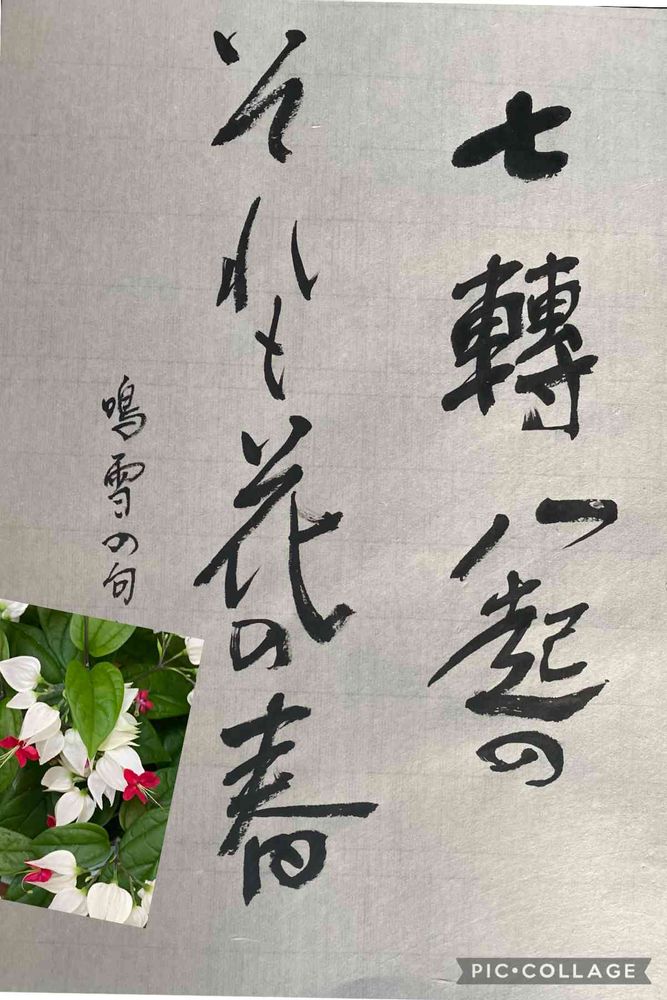 七轉八起の
それも花の春
鳴雪の句
PIC•COLLAGE